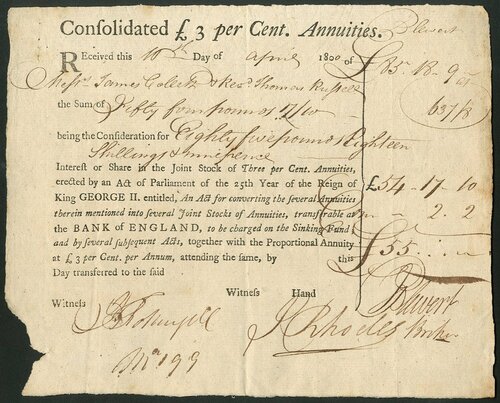 Consolidated £ 3 per Cent. Annuities.
REceived this 10th Day of April 1800 of
£85. 18. 9 at
Messrs James & Revd. Thomas Russell
63 7/8
the Sum of Fifty four pounds 17/10
being the Consideration for Eighty five pounds Eighteen
Shillings & ninepence
Interest or Share in the Joint Stock of Three per Cent. Annuities,
erected by an Act of Parliament of the 25th Year of the Reign of
King GEORGE II. entitled, An Act for converting the several Annuities
therein mentioned into several Joint Stocks of Annuities, transferable at
the BANK of ENGLAND, to be charged on the Sinking Fund;
and by several subsequent Acts, together with the Proportional Annuity
at £ 3 per Cent. per Annum, attending the same, by this
Day transferred to the said
£54 - 17 - 10
- 2. 2
£55
Witness Witness Hand
J Rhodes
Broker
No 199